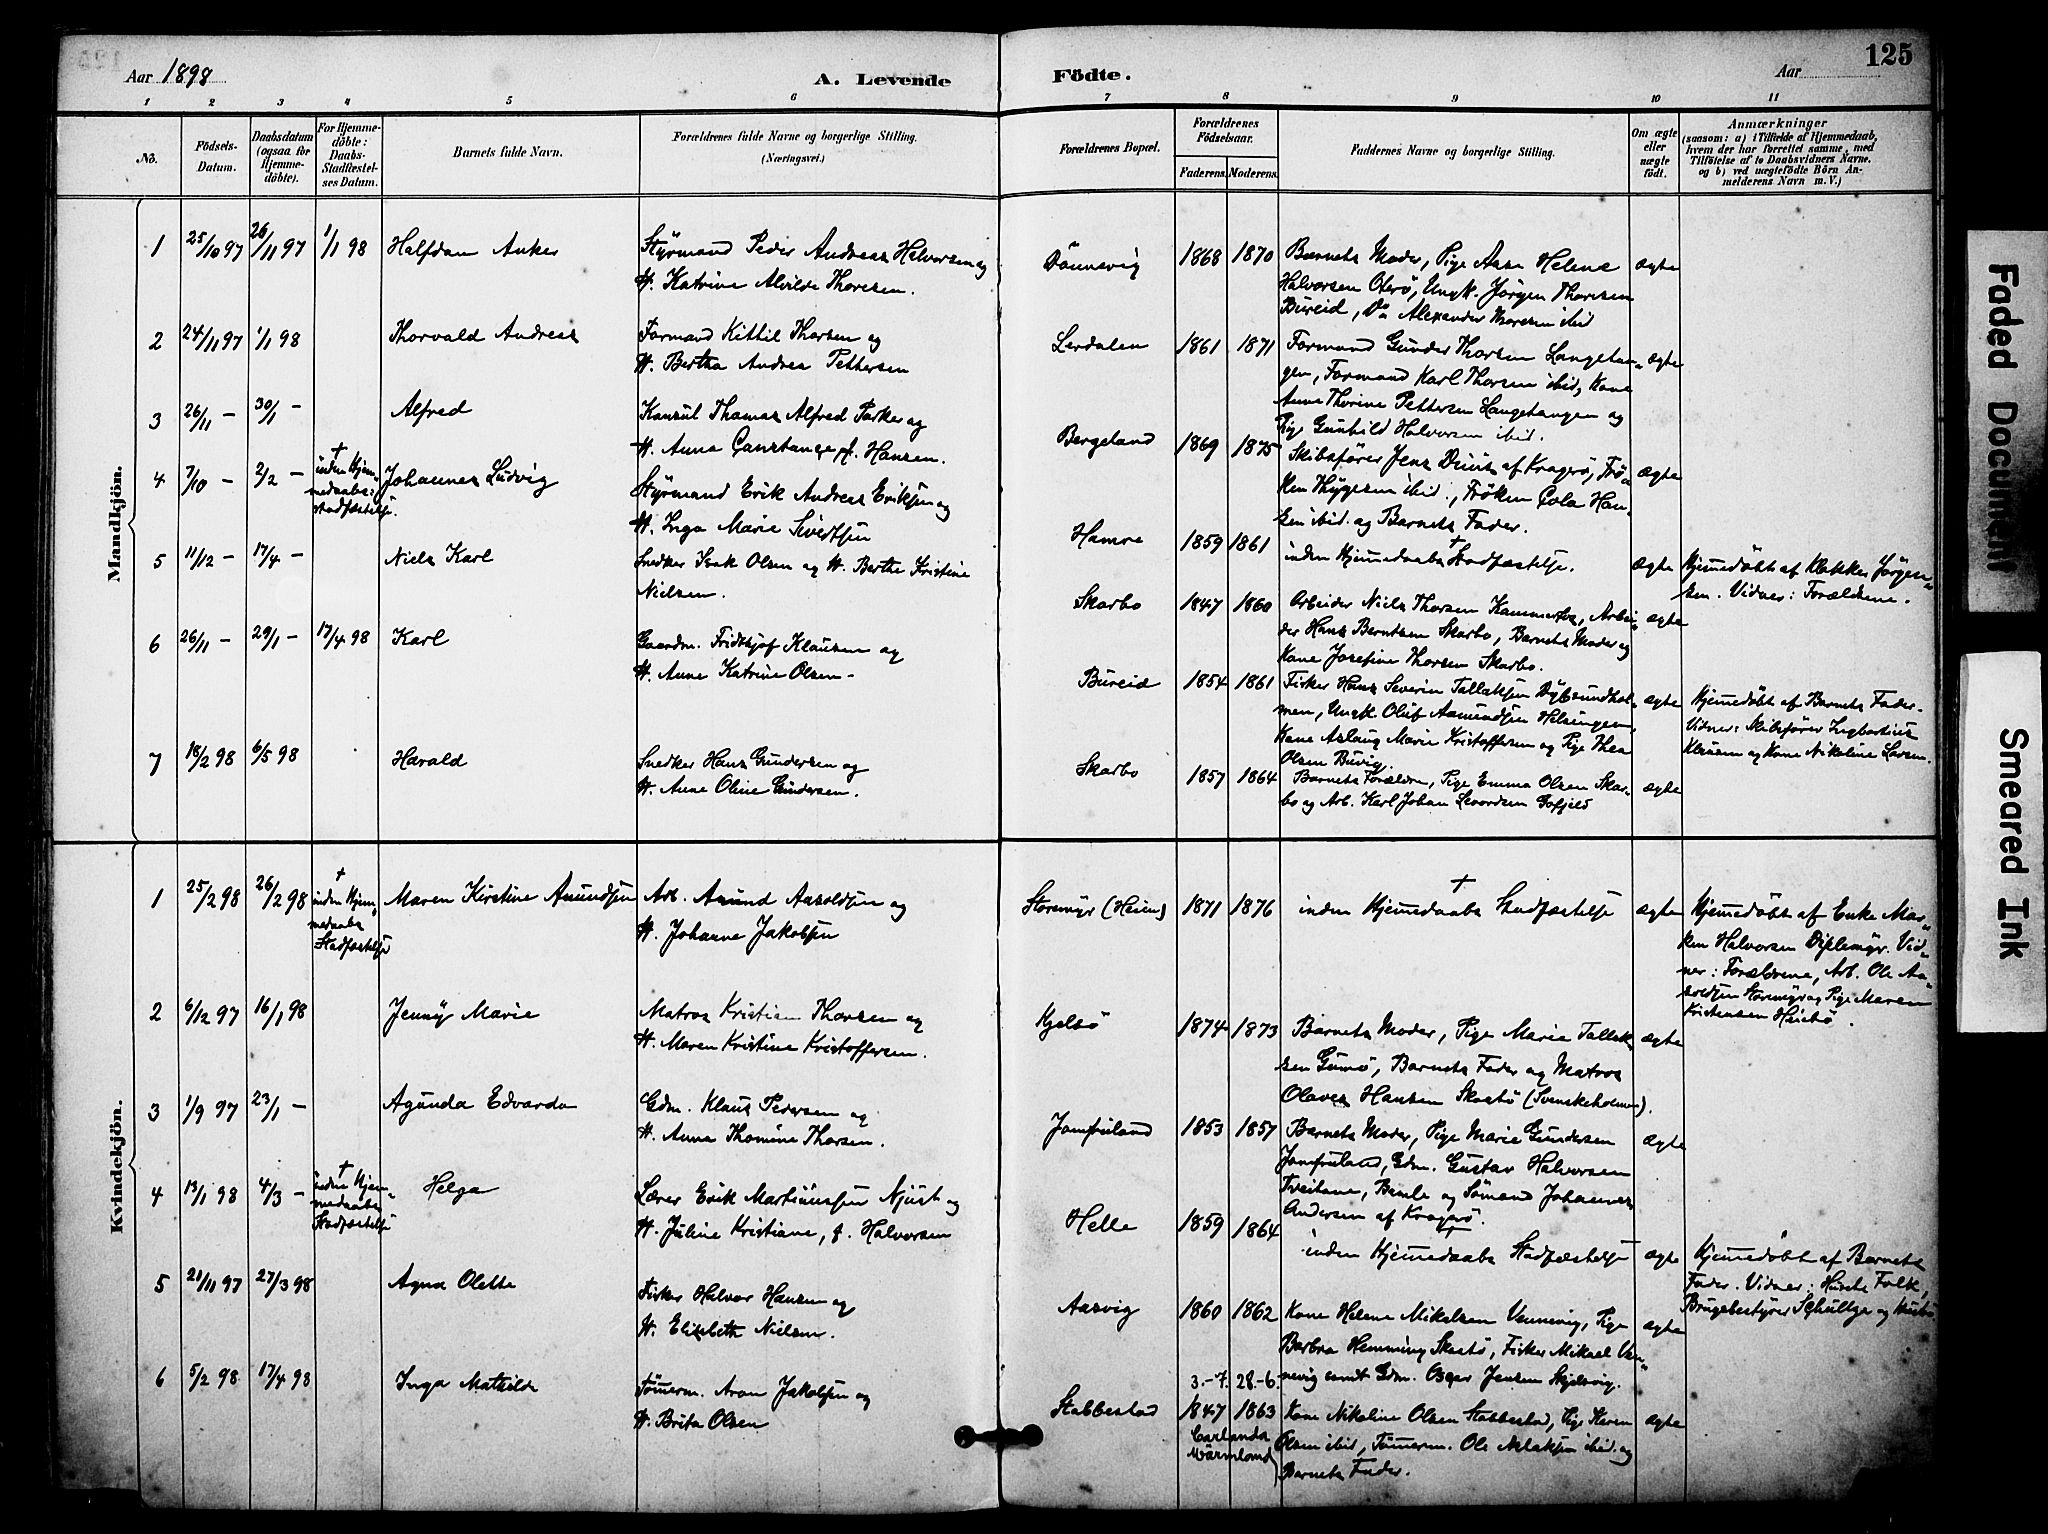 125
Aar 1898
A. Levende
Födte.
Aar
1 2 3 4 5 6 7 8 9 10 11
No.
Födsels-
Datum.
Daabsdatum
(ogsaa for
Hjemme-
döbte).
For Hjemme-
döbte:
Daabs-
Stadfæstel-
ses Datum.
Barnets fulde Navn.
Forældrenes fulde Navne og borgerlige Stilling.
(Næringsvei.)
Forældrenes Bopæl.
Forældrenes
Födselsaar.
Faderens. Moderens.
Faddernes Navne og borgerlige Stilling.
Om ægte
eller
uægte
født.
Anmærkninger
(saasom: a) i Tilfælde af Hjemmedaab,
hvem der har forrettet samme, med
Tilföielse af to Daabsvidners Navne.
og b) ved uægtefödte Börn An-
melderens Navn m. V.)
Mandkjön.
1 25/10 97 26/11 97 1/1 98 Halfdan Anker
Styrmand Peder Andreas Halvorsen og
H. Katrine Alvilde Thoresen.
1868 1870
Barnets Moder, Pige Aase Helene
Halvorsen Oterö, Ungk. Jörgen Thoresen
Bureid, Do Alexander Thoresen ibid
ægte
2 24/11 97 1/1 98 Thorvald Andreas
Formand Kittil Thorsen og
H. Bertha Andrea Pettersen
Lerdalen 1861 1871
Formand Gunder Thorsen Langetan-
gen, Formand Karl Thorsen ibid, Kone
Anne Thorine Pettersen Langetangen og
Pige Gunhild Halvorsen ibid.
ægte
3 26/11 — 30/1 — Alfred
Konsul Thomas Alfred Parker og
H. Anna Constance f. Hansen.
Bergeland 1869 1875
Skibsfører Jens Duus af Kragerø, Frø-
ken Thygesen ibid., Frøken Cola Han-
sen ibid. og Barnets Fader.
ægte
4 7/10 — 2/2 — † inden Hjem-
medaabs
stadfæstelse.
Johannes Ludvig
Styrmand Erik Andreas Eriksen og
H. Inga Marie Sivertsen
Hamre 1859 1861
† inden Hjemmedaabs Stadfæstelse.
ægte
Hjemmedöbt af Klokker Jörgen-
sen. Vidner: Forældrene.
5 11/12 — 17/4 — Niels Karl
Snedker Isak Olsen og H. Berthe Kristine
Nielsen.
Skarbo 1847 1860
Arbeider Niels Thorsen Kammerfos, Arbei-
der Hans Berntsen Skarbo, Barnets Moder og
Kone Josefine Thorsen Skarbo.
ægte
6 26/11 — 29/1 — 17/4 98 Karl
Gaardm. Fridthjof Klausen og
H. Anne Katrine Olsen
Bureid 1854 1861
Fisker Hans Severin Tallaksen Dybsundhol-
men, Ungk. Oluf Aamundsen Helsingen,
Kone Aslaug Marie Kristoffersen og Pige Thea
Olsen Buvig.
ægte
Hjemmedöbt af Barnets Fader.
Vidner: Skibsfører Ingbertius
Klausen og Kone Nikoline Larsen.
7 18/2 98 6/5 98 Harald
Snedker Hans Gundersen og
H. Anne Oline Gundersen.
Skarbo 1857 1864
Barnets Forældre, Pige Emma Olsen Skar-
bo og Arb. Karl Johan Levordsen Gofjeld
ægte
Kvindekjön.
1 25/2 98 26/2 98 † inden Hjem-
medaabs
Stadfæstelse
Maren Kirstine Amundsen
Arb. Amund Aasoldsen og
H. Johanne Jakobsen
Storemyr (Heien) 1871 1876
† inden Hjemmedaabs Stadfæstelse
ægte
Hjemmedöbt af Enke Mar-
ken Halvorsen Diplemyr. Vid-
ner: Forældrene, Arb. Ole Aa-
soldsen Storemyr og Pige Maren
Kristensen Heibö.
2 6/12 97 16/1 98 Jenny Marie
Matros Kristian Thorsen og
H. Maren Kristine Kristoffersen.
Kjelsö 1874 1873
Barnets Moder, Pige Marie Tallak-
sen Gumö, Barnets Fader og Matros
Olaves Hansen Skaatö (Svenskeholmen).
ægte
3 1/9 97 23/1 — Agunda Edvarda
Gdm. Klaus Pedersen og
H. Anna Thomine Thorsen.
Jomfruland 1853 1857
Barnets Moder, Pige Marie Gundersen
Jomfruland, Gdm. Gustav Halvorsen
Tveitane, Bamle og Sömand Johannes
Andersen af Kragerö.
ægte
4 13/1 98 4/3 — † inden Hjem-
medaabs
Stadfæstelse
Helga
Lærer Erik Martiniussen Njust og
H. Juline Kristiane, f. Halvorsen
Helle 1859 1864
† inden Hjemmedaabs Stadfæstelse
ægte
Hjemmedöbt af Barnets
Fader. Vidner: Falk,
Brugsbestyrer Schultze og Hustru
5 21/11 97 27/3 98 Agna Olette
Fisker Halvor Hansen og
H. Elisbeth Nielsen.
Aasvig 1860 1862
Kone Helene Mikelsen Vennevig, Pige
Barbra Hemming Skaatö, Fisker Mikael Ven-
nevig samt Gdm. Osger Jensen Skjelsvig.
ægte
6 5/2 98 17/4 98 Inga Mathilde
Tömerm. Aron Jakobsen og
H. Brita Olsen
Stabbestad 3.-7. 28.-6.
1847 1863
Carlanda
Wärmland)
Kone Nikoline Olsen Stabbestad, Pige Karen
Olsen ibid, Tömerm. Ole Nelaksen ibid. og
Barnets Fader.
ægte
Faded Document
Smeared Ink